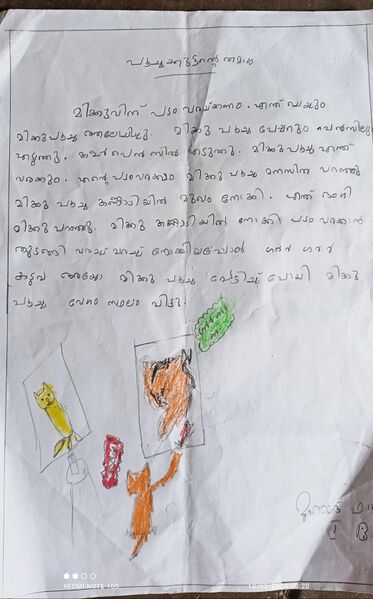 പൂച്ചക്കുട്ടന്റെ തമാശ
മിക്കുവിന് പടം വരയ്ക്കണം. എന്ത് വരക്കും
മിക്കു പൂച്ച ആലോചിച്ചു. മിക്കു പൂച്ച പേപ്പറും പെൻസിലും
എടുത്തു. കളർ പെൻസിൽ എടുത്തു. മിക്കു പൂച്ച എന്ത്
വരക്കും. എന്റെ പടം വരക്കാം മിക്കു പൂച്ച മനസിൽ പറഞ്ഞു
മിക്കു പൂച്ച കണ്ണാടിയിൽ മുഖം നോക്കി. എന്ത് ഭംഗി
മിക്കു പറഞ്ഞു. മിക്കു കണ്ണാടിയിൽ നോക്കി പടം വരക്കാൻ
തുടങ്ങി വരച്ച് വരച്ച് നോക്കിയപ്പോൾ ഗർർ ഗർർ
കടുവ അയ്യോ മിക്കു പൂച്ച പേടിച്ച് പോയി മിക്കു
പൂച്ച വേഗം സ്ഥലം വിട്ടു.
REDMI NOTE 10S